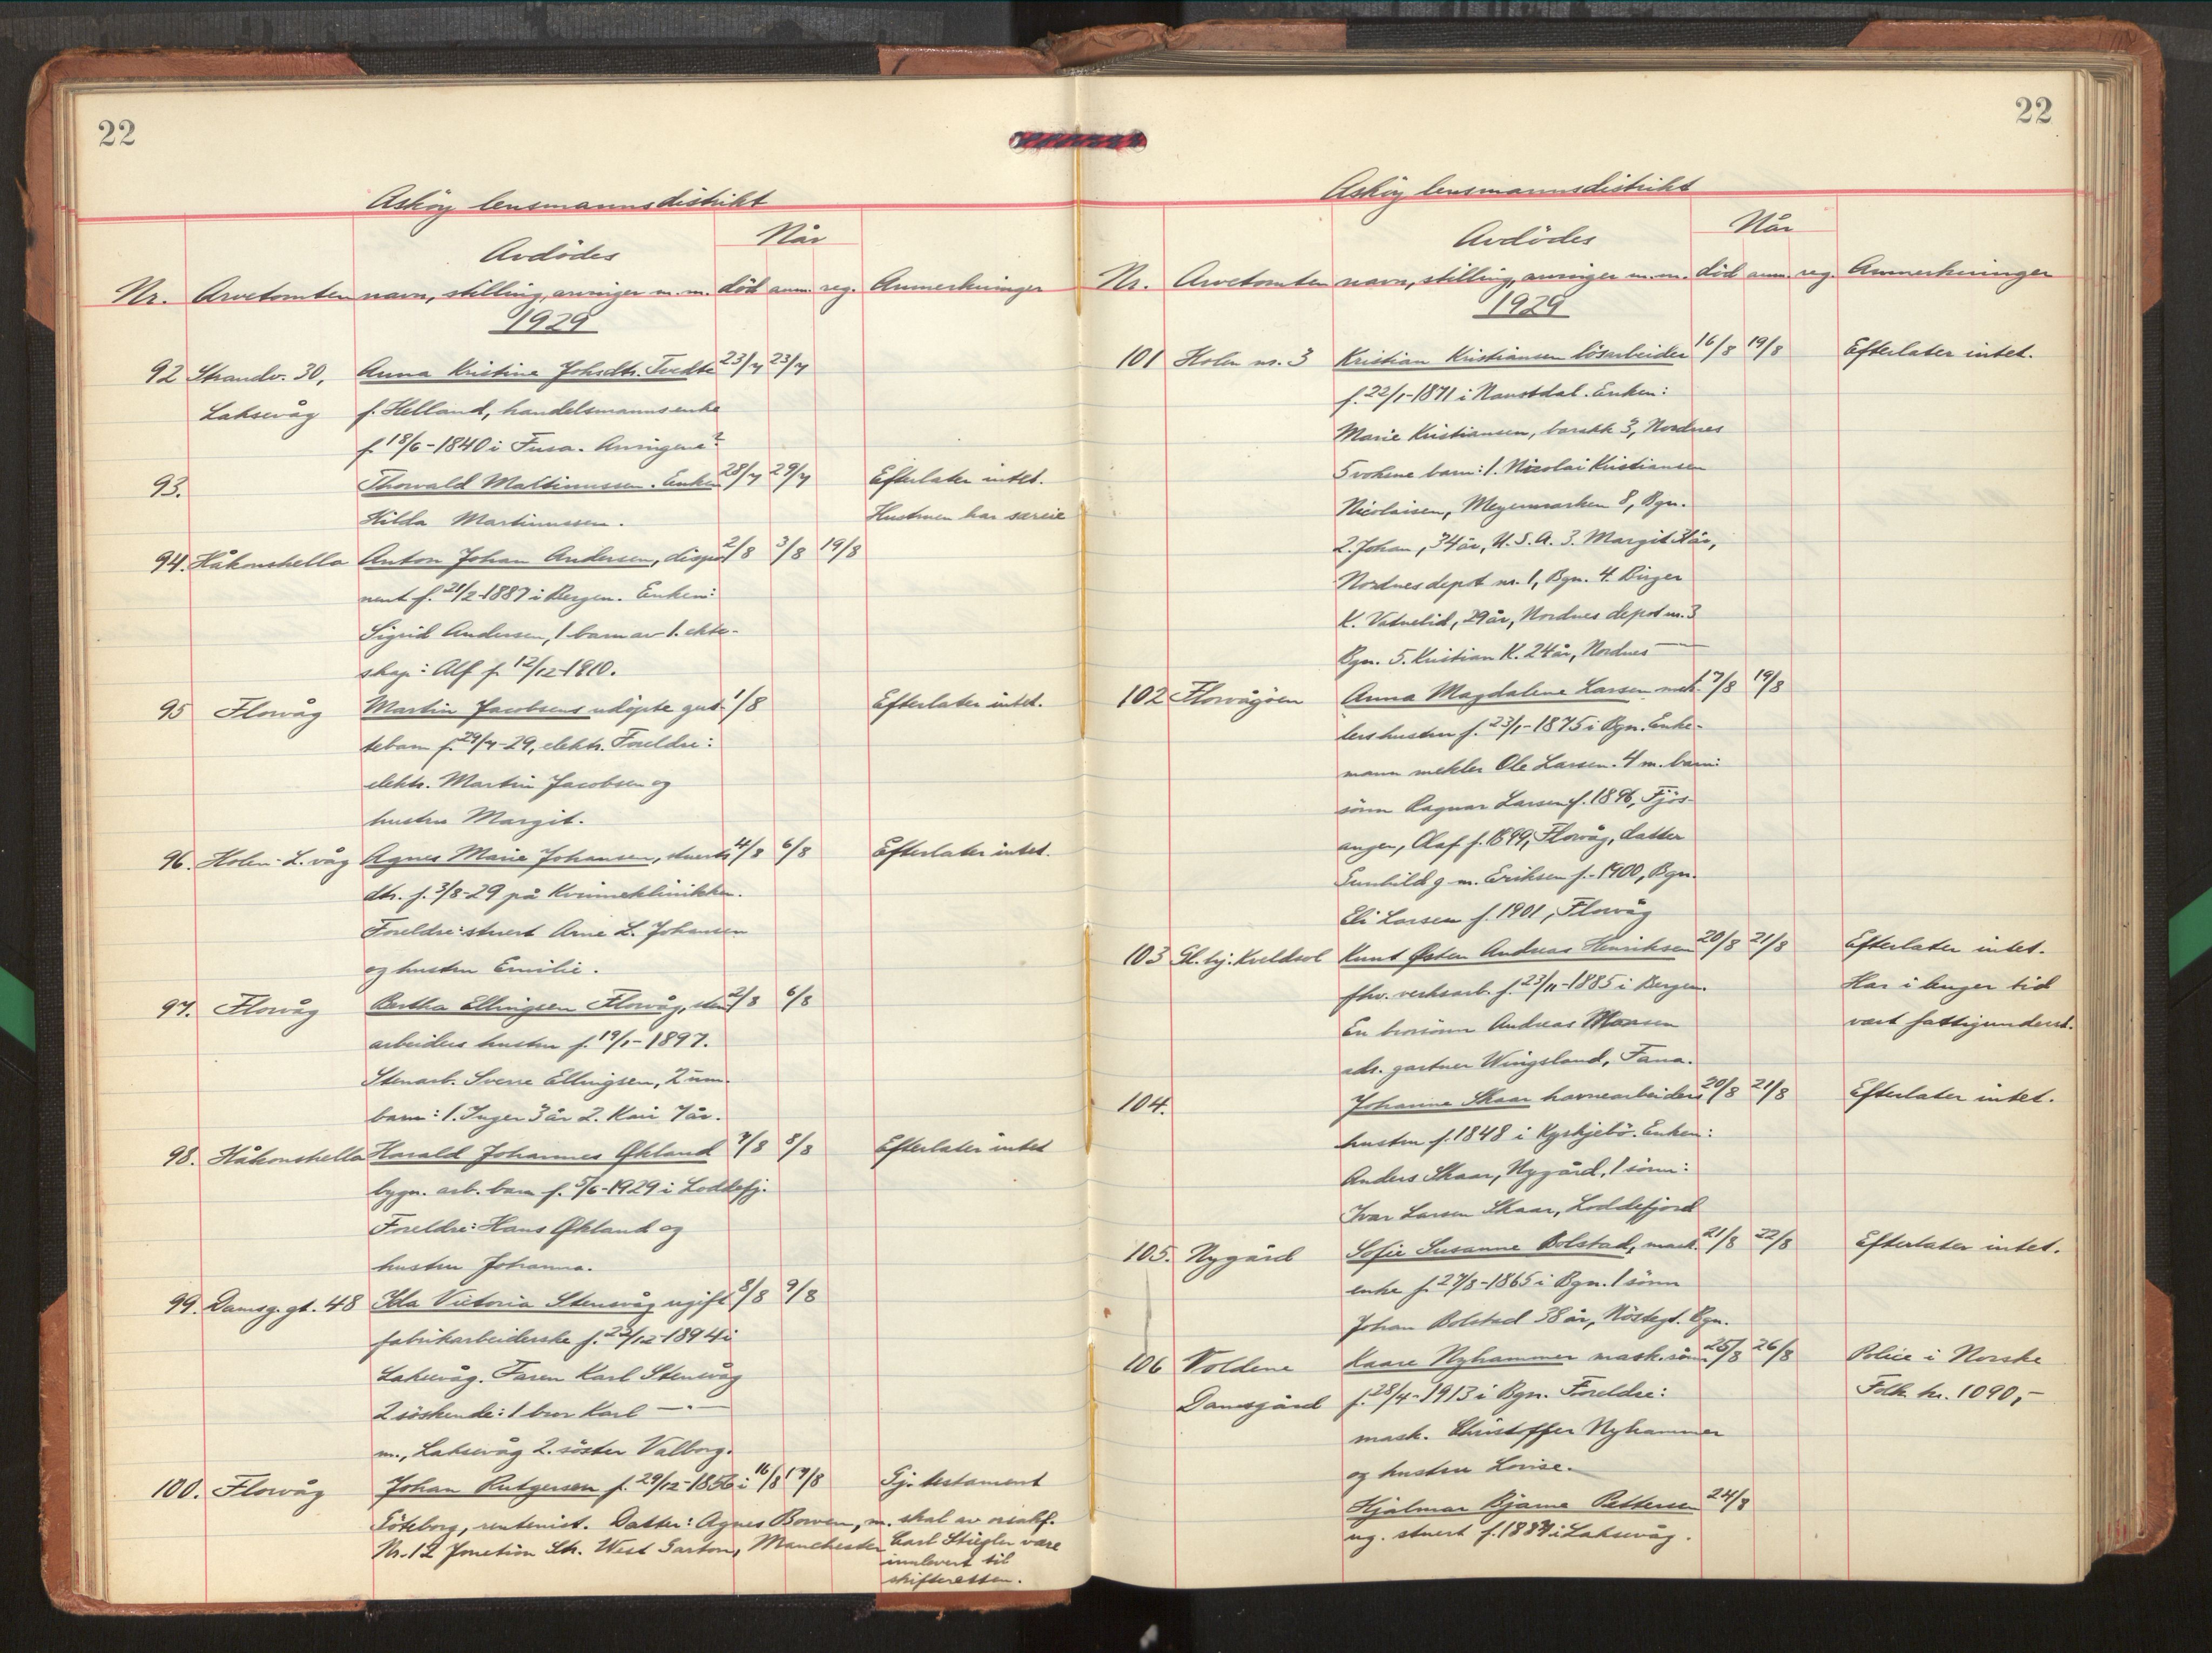 22
Askøy lensmannsdistrikt
Avdödes
Når
Nr. Arvetomten navn, stilling, arvinger m.m. död anm. reg. Anmerkninger
1929
92 Strandv. 30, Anna Kristine Johsdtr. Tvedte 23/7 23/7
Laksevåg f. Helland, handelsmannsenke
f. 18/6-1840 i Fusa. Arvingene?
93. Thorvald Martinussen. Enken 28/7 29/7 Efterlater intet.
Hilda Martinussen. Hustruen har særeie
94. Håkonshella Anton Johan Andersen, dispo- 2/8 3/8 19/8
nent f. 21/2-1887 i Bergen. Enken:
Sigrid Andersen, 1 barn av 1. ekte-
skap: Alf f. 12/12-1910.
95 Florvåg Martin Jacobsens udöpte gut- 1/8 Efterlater intet.
tebarn f. 29/7-29, elektr. Foreldre:
elektr. Martin Jacobsen og
hustru Margit.
96. Holen-L.våg Agnes Marie Johansen, stuerts 4/8 6/8 Efterlater intet.
dtr. f. 3/8-29 på Kvinneklinikken.
Foreldre: stuert Arne L. Johansen
og hustru Emilie.
97. Florvåg Bertha Ellingsen Florvåg, sten- 2/8 6/8
arbeiders hustru f. 19/1-1897.
Stenarb. Sverre Ellingsen, 2 um.
barn: 1. Inger 3 år 2. Kari 7 år.
98. Håkonshella Harald Johannes Økland 7/8 8/8 Efterlater intet
bygn. arb. barn f. 5/6-1929 i Loddefj.
Foreldre: Hans Økland og
hustru Johanna.
99. Damsg.gt. 48 Ida Victoria Stensvåg ugift 8/8 9/8
fabrikarbeiderske f. 22/12-1894 i
Laksevåg. Faren Karl Stensvåg
2 söskende: 1 bror Karl —"—
m., Laksevåg 2. söster Valborg.
100. Florvåg Johan Rutgersen f. 29/12-1856 i 16/8 17/8 Gj. testament
Göteborg, rentenist. Datter: Agnes Bowen, m. skal av o.r.sakf.
Nr. 12 Jonction Str. West Garton, Manchester Carl Stiegler være
innlevert til
skifteretten.
22
Askøy lensmannsdistrikt
Avdödes
Når
Nr. Arvetomten navn, stilling, arvinger m.m. död anm. reg. Anmerkninger
1929
101 Holen nr. 3 Kristian Kristiansen lösarbeider 16/8 19/8 Efterlater intet.
f. 22/1-1871 i Naustdal. Enken:
Marie Kristiansen, barakk 3, Nordnes
5 voksne barn: 1. Nicolai Kristiansen
Nicolaisen, Meyermarken 8, Bgn.
2. Johan, 34 år, U.S.A. 3. Margit Hår,
Nordnes depot nr. 1, Bgn. 4. Birger
K. Vatnelid, 29 år, Nordnes depot nr. 3
Bgn. 5. Kristian K. 24 år, Nordnes —"—
102 Florvågöen Anna Magdalene Larsen mek- 17/8 19/8
lers hustru f. 23/1-1875 i Bgn. Enke-
mann mekler Ole Larsen. 4 m. barn:
sönn Ragnar Larsen f. 1896, Fjös-
anger, Olaf f. 1899, Florvåg, datter
Gunhild g. m. Eriksen f. 1900, Bgn.
Eli Larsen f. 1901, Florvåg
103 Gl.hj. Kveldsol Knut Østen Andreas Henriksen 20/8 21/8 Efterlater intet.
fhv. verksarb. f. 23/11-1885 i Bergen. Har i lenger tid
En brorsönn Andreas Monsen vært fattigunderst.
adr. gartner Wingsland, Fana.
104. Johanne Skaar havnearbeiders 20/8 21/8 Efterlater intet.
hustru f. 1848 i Kyrkjebö. Enken:
Anders Skaar, Nygård, 1 sönn:
Ivar Larsen Skaar, Loddefjord
105. Nygård Sofie Susanne Bolstad, mask. 21/8 22/8 Efterlater intet.
enke f. 27/8-1865 i Bgn. 1 sönn
Johan Bolstad 38 år, Nöstegt. Bgn.
106 Voldene Kaare Nyhammer mask. sönn 25/8 26/8 Police i Norske
Damsgård f. 28/4-1913 i Bgn. Foreldre: Folk kr. 1090,-
mask. Christoffer Nyhammer
og hustru Lovise.
Hjalmar Bjarne Pettersen 24/8
ug. stuert f. 1887 i Laksevåg.